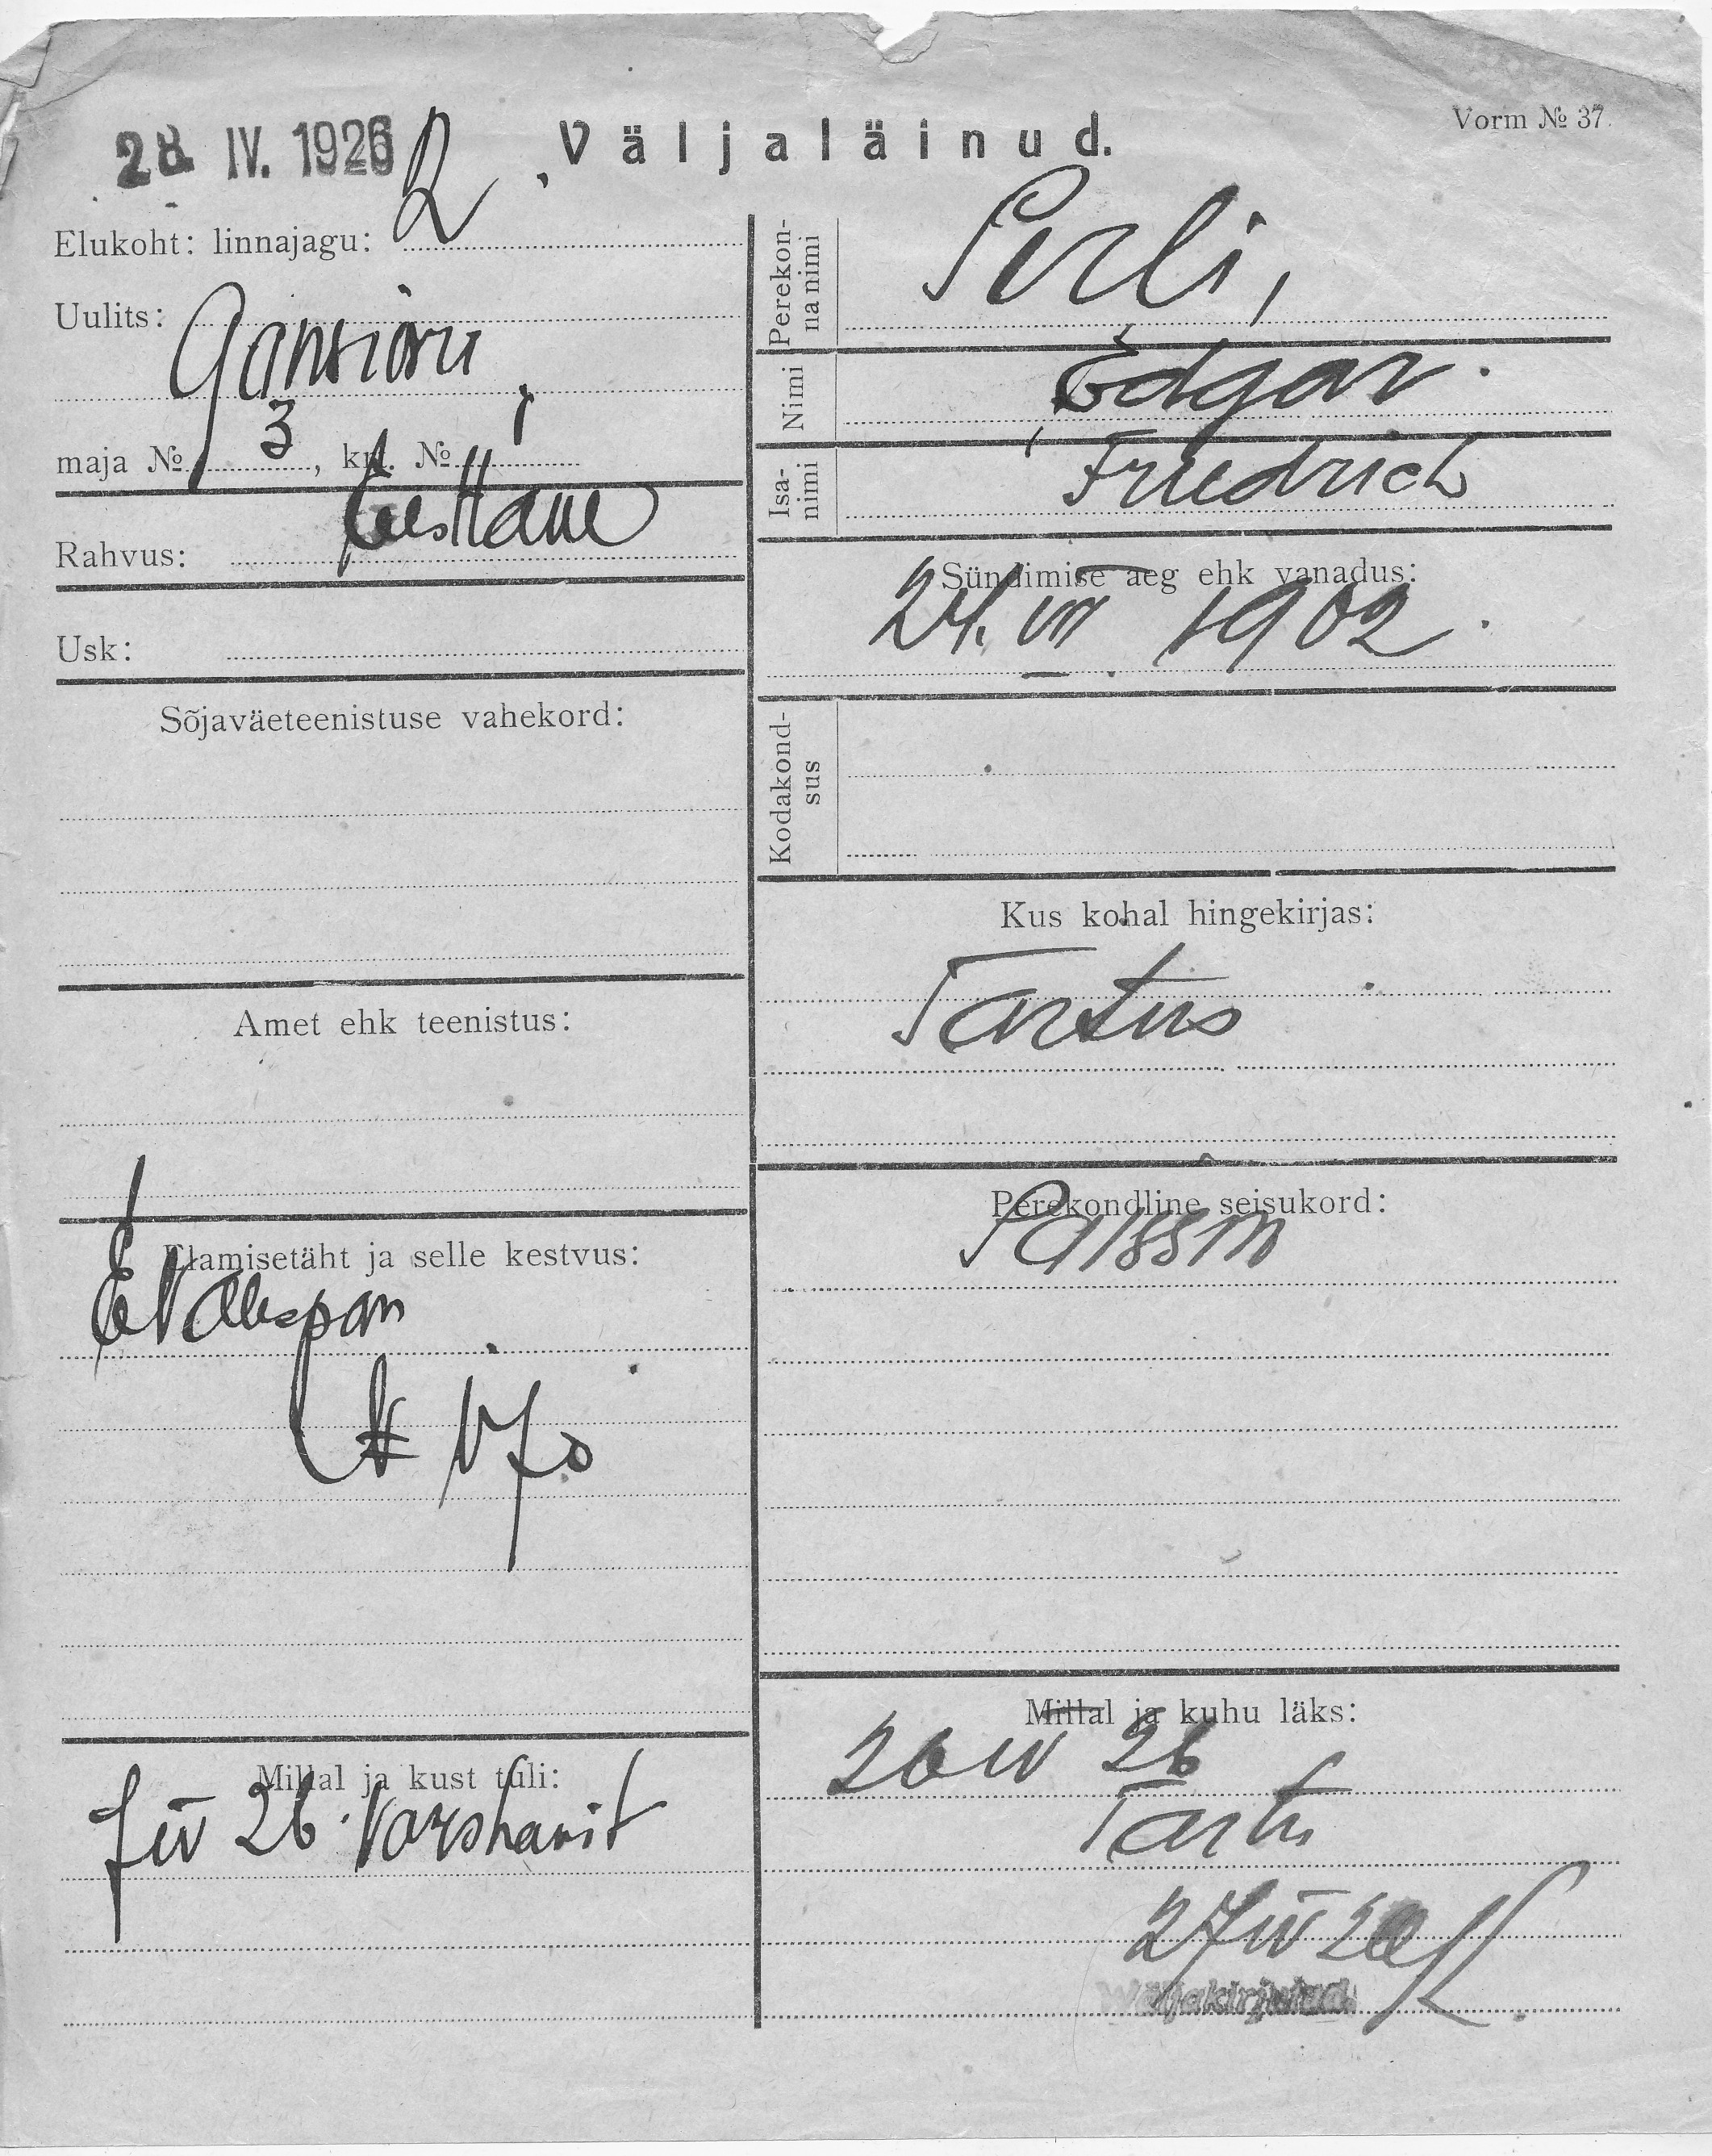 28. IV. 1926
Väljaläinud.
Vorm № 37.
Elukoht: linnajagu: 2
Uulits:
Gonsiori
maja № 3, krt. №
Rahvus: Eestlane
Usk:
Sõjaväeteenistuse vahekord:
Amet ehk teenistus:
Elamisetäht ja selle kestvus:
E Välispass
№ 170
Millal ja kust tuli:
7 IV 26 Varshavist
Perekonnanimi
Perli,
Nimi
Edgar.
Isanimi
Friedrich
Sündimise aeg ehk vanadus:
24. VII 1902.
Kodakondsus
Kus kohal hingekirjas:
Tartus
Perekondline seisukord:
Poissm
Millal ja kuhu läks:
26 IV 26
Tartu
27 IV 26
Wäljakirjutud.